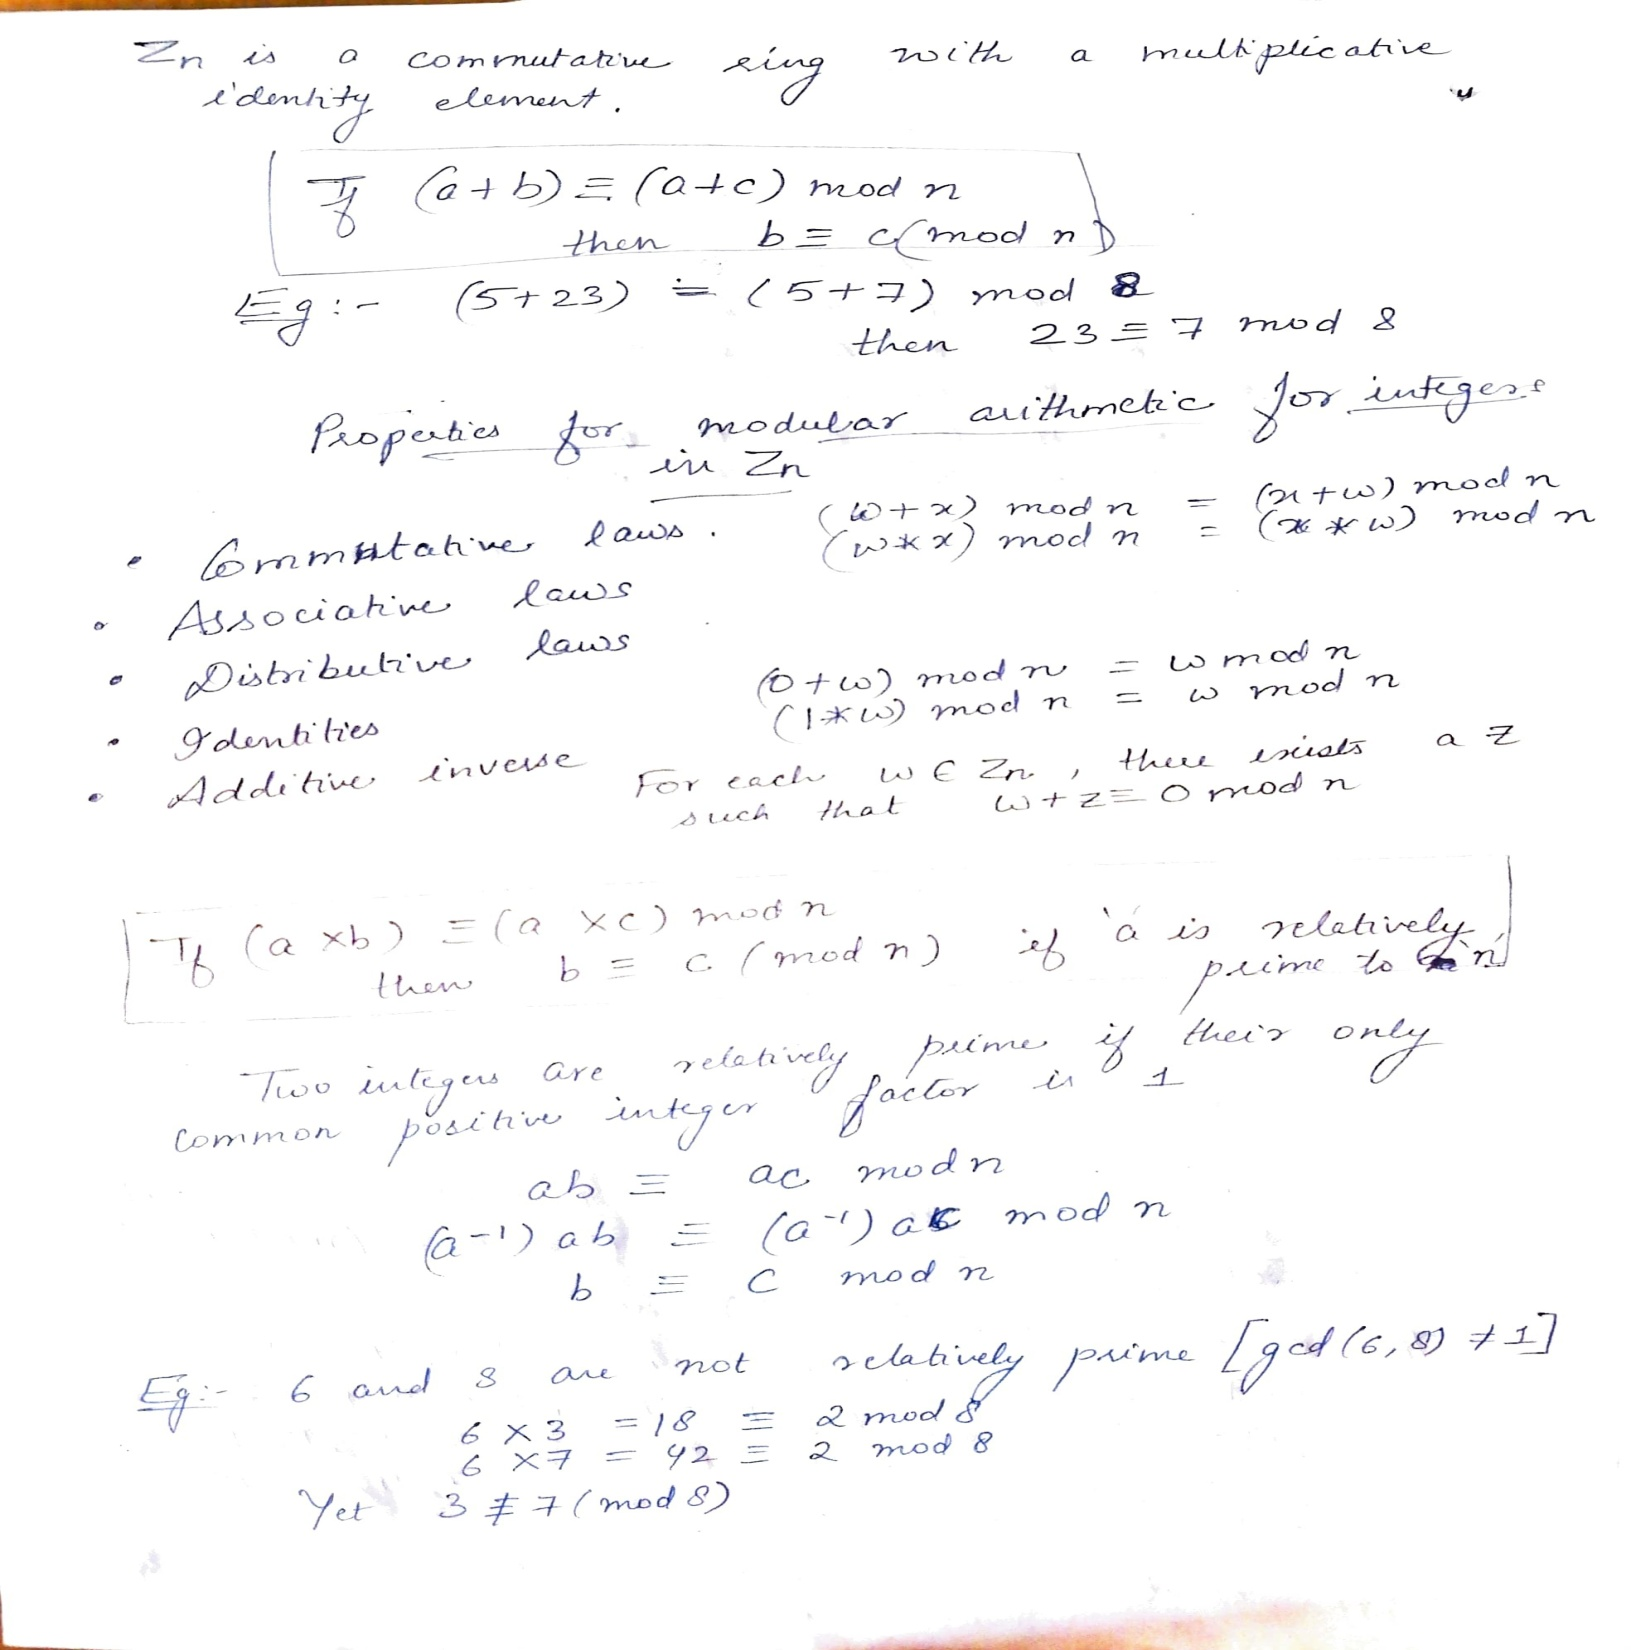 Zn is a commutative ring with a multiplicative
identity element.
If (a+b) ≡ (a+c) mod n
then b ≡ c (mod n)
Eg:- (5+23) ≡ (5+7) mod 8
then 23 ≡ 7 mod 8
Properties for modular arithmetic for integers
in Zn
• Commutative laws. (w+x) mod n = (x+w) mod n
(w*x) mod n = (x*w) mod n
• Associative laws
• Distributive laws
• Identities (0+w) mod n = w mod n
(1*w) mod n = w mod n
• Additive inverse For each w ∈ Zn, there exists a z
such that w+z ≡ 0 mod n
If (a×b) ≡ (a×c) mod n
then b ≡ c (mod n) if 'a' is relatively
prime to 'n'
Two integers are relatively prime if their only
common positive integer factor is 1
ab ≡ ac mod n
(a⁻¹) ab ≡ (a⁻¹) ac mod n
b ≡ c mod n
Eg:- 6 and 8 are not relatively prime [gcd(6,8) ≠ 1]
6 × 3 = 18 ≡ 2 mod 8
6 × 7 = 42 ≡ 2 mod 8
Yet 3 ≢ 7 (mod 8)